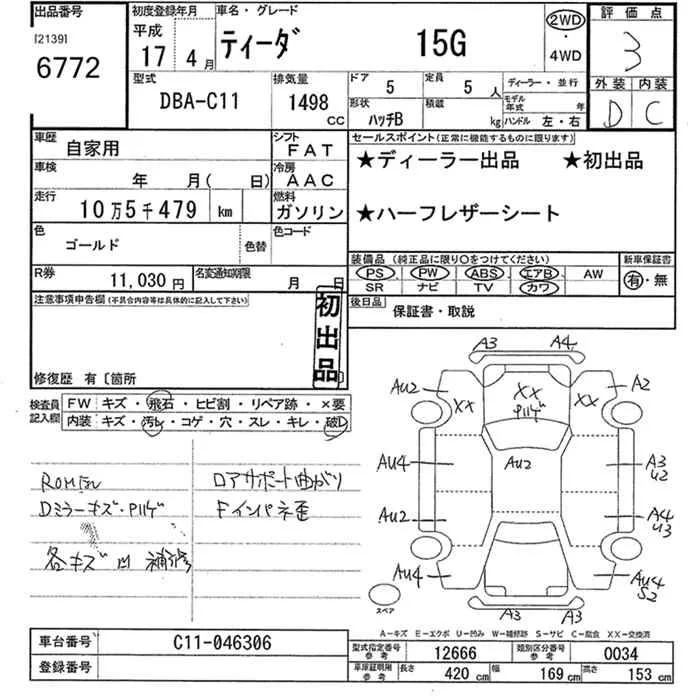 出品番号
[2139]
6772
初度登録年月
平成
17年 4月
車名・グレード
ティーダ 15G
2WD
・
4WD
評価点
3
外装 内装
D C
型式
DBA-C11
排気量
1498
CC
ドア
5
定員
5 人
ディーラー・並行
形状
ハッチB
積載
kg
モデル年式 年
ハンドル 左・右
車歴
自家用
シフト
FAT
車検
年 月( 日)
冷房
AAC
走行
10万5千479 km
燃料
ガソリン
色
ゴールド
色替
色コード
R券
11,030円
名変通知期限
月 日
セールスポイント(正常に機能するものに限ります)
★ディーラー出品 ★初出品
★ハーフレザーシート
装備品 (純正品に限り○をつけてください)
新車保証書
PS PW ABS エアB AW
SR ナビ TV カワ
有・無
後日品
保証書・取説
注意事項申告欄(不具合内容等は具体的に記入して下さい)
初出品
修復歴 有〔箇所 〕
検査員記入欄
FW キズ・飛石・ヒビ割・リペア跡・×要
内装 キズ・汚れ・コゲ・穴・スレ・キレ・破D
ロアサポート曲がり
Dミラーキズ・Pハゲ
Fインパネ歪
各キズ凹補修
A3 A4
AU2 XX XX XX A2
Pハゲ
AU4 AU2 A3
U2
AU2 A4
U3
AU4 AU4
S2
A3 A3
スペア
A-キズ E-エクボ U-凹み W-補修跡 S-サビ C-腐食 XX-交換済
車台番号
C11-046306
登録番号
型式指定番号
参考
12666
類別区分番号
参考
0034
車庫証明用
参考
長さ 420 cm 幅 169 cm 高さ 153 cm